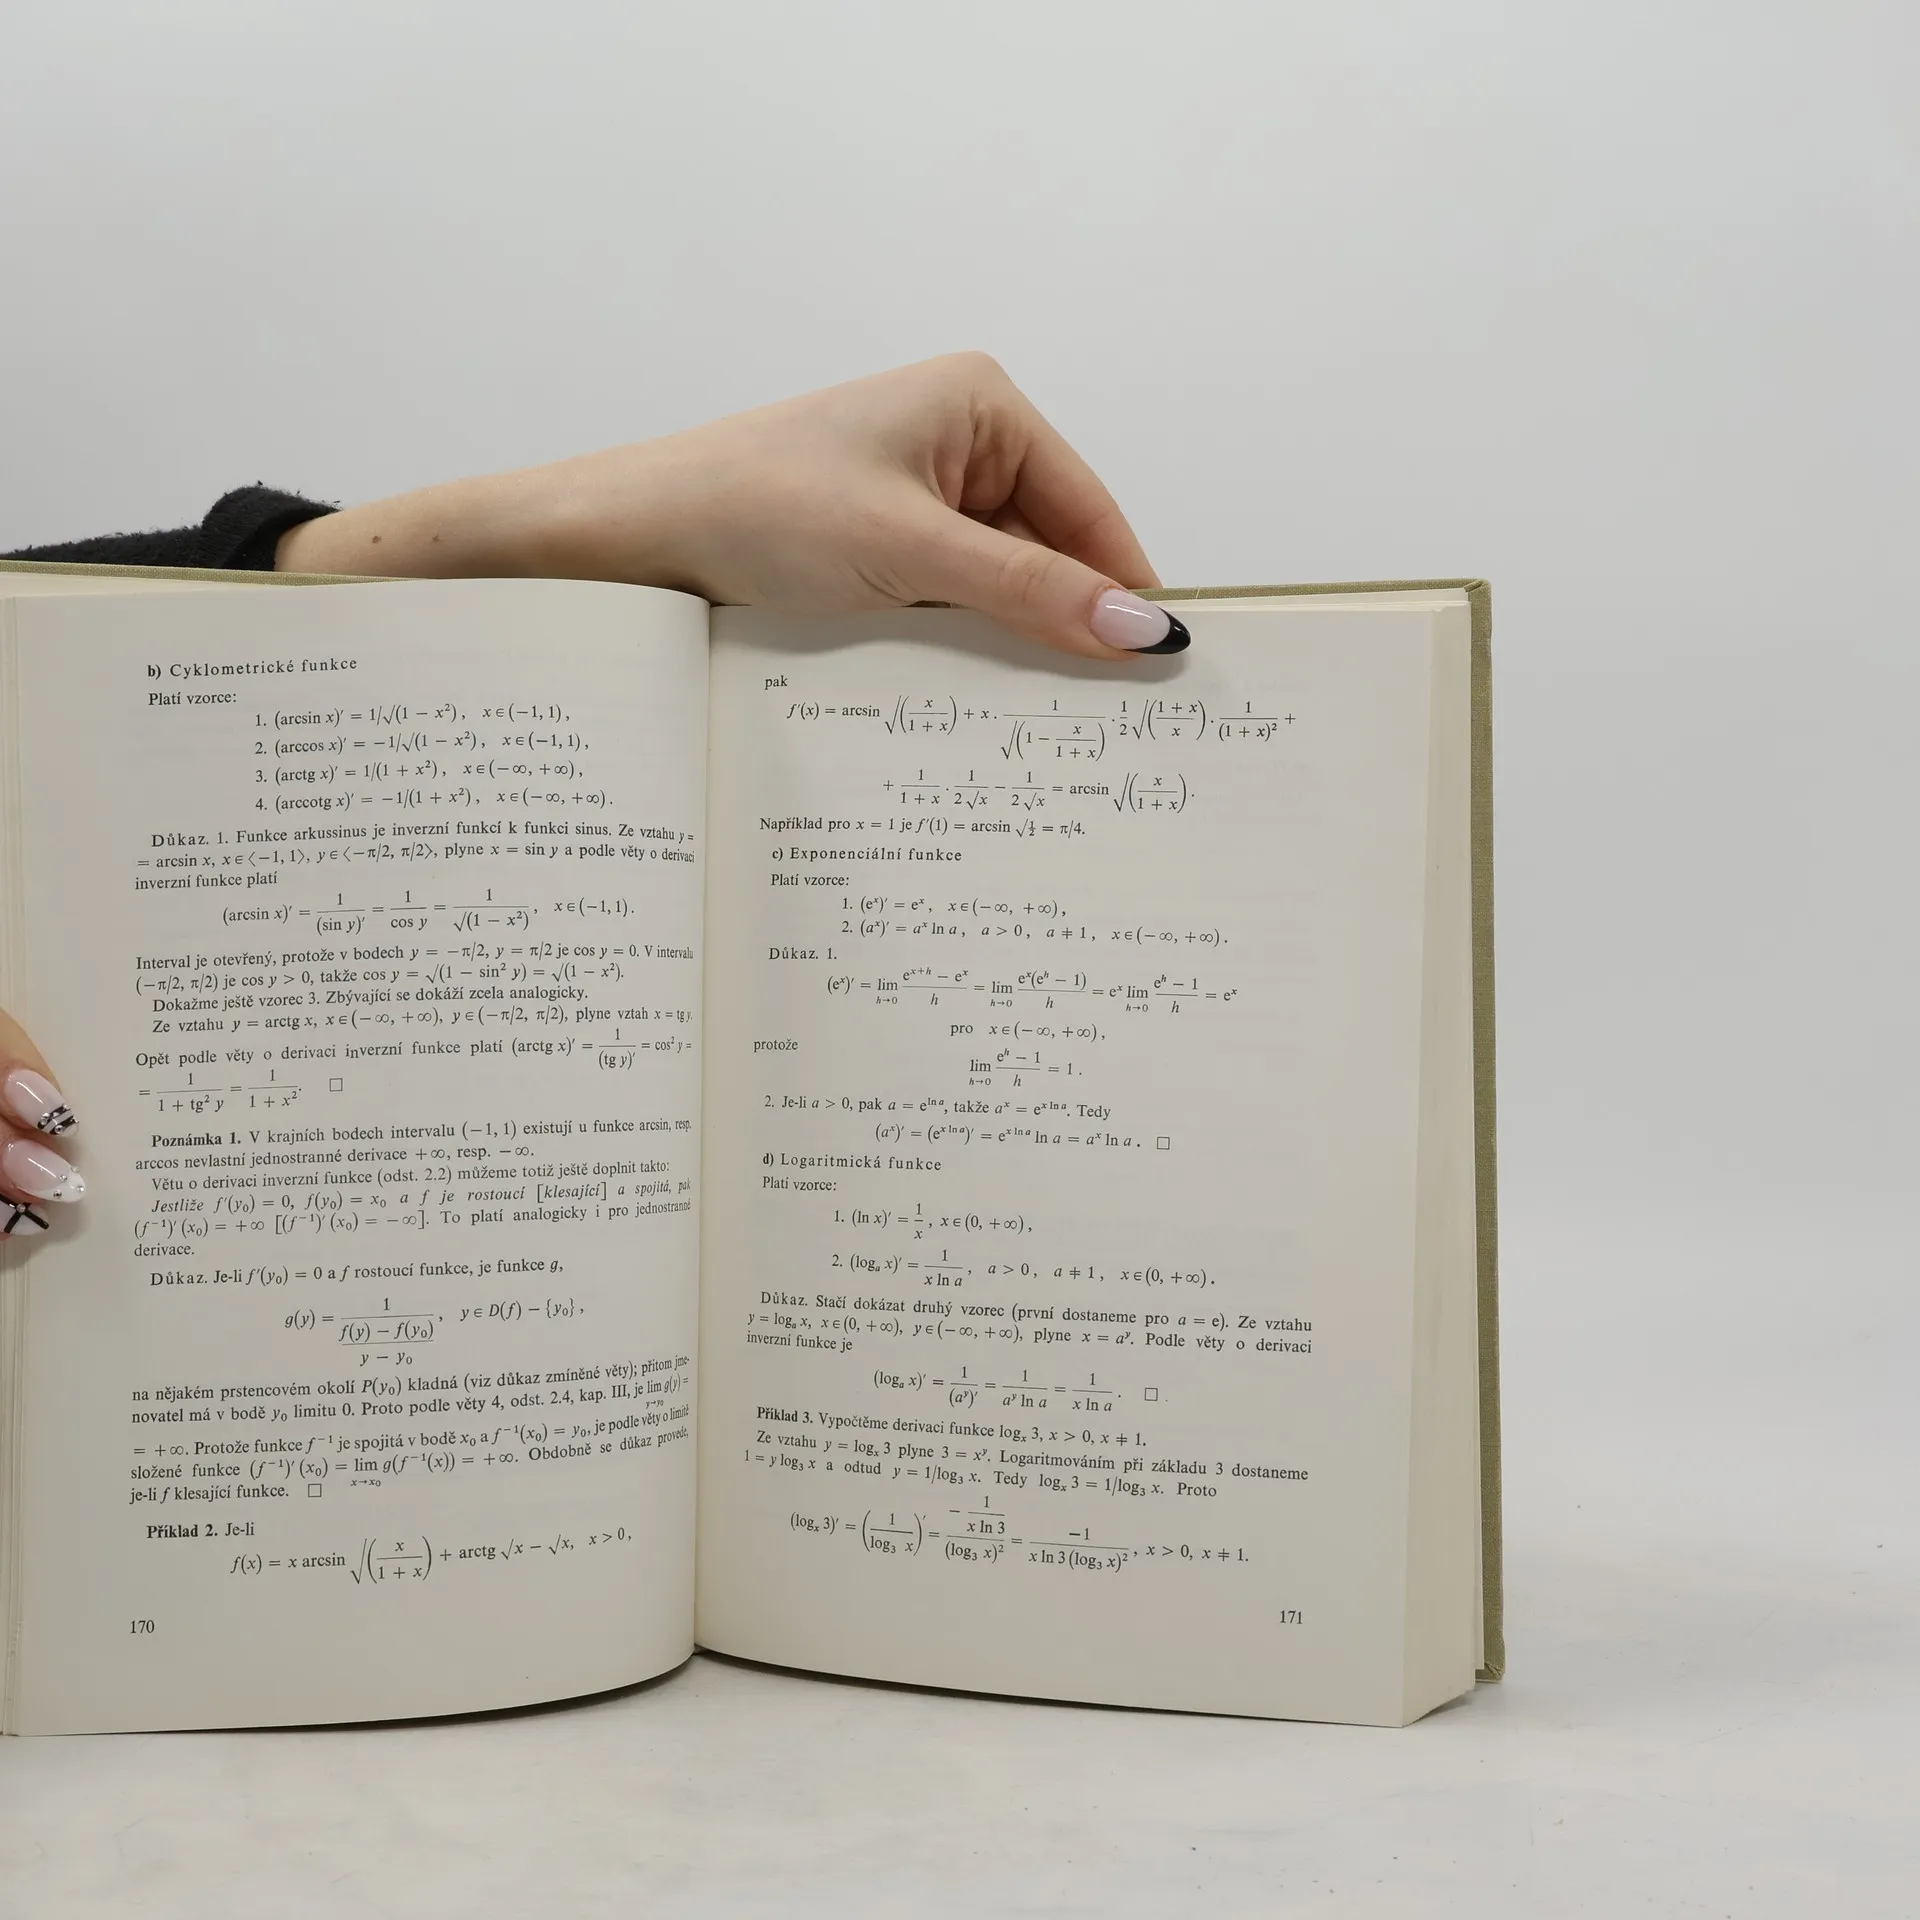 b) Cyklometrické funkce
Platí vzorce:
1. (arcsin x)′ = 1/√(1 − x²), x ∈ (−1, 1),
2. (arccos x)′ = −1/√(1 − x²), x ∈ (−1, 1),
3. (arctg x)′ = 1/(1 + x²), x ∈ (−∞, +∞),
4. (arccotg x)′ = −1/(1 + x²), x ∈ (−∞, +∞).
Důkaz. 1. Funkce arkussinus je inverzní funkcí k funkci sinus. Ze vztahu y =
= arcsin x, x ∈ ⟨−1, 1⟩, y ∈ ⟨−π/2, π/2⟩, plyne x = sin y a podle věty o derivaci
inverzní funkce platí
(arcsin x)′ = 1/(sin y)′ = 1/cos y = 1/√(1 − x²), x ∈ (−1, 1).
Interval je otevřený, protože v bodech y = −π/2, y = π/2 je cos y = 0. V intervalu
(−π/2, π/2) je cos y > 0, takže cos y = √(1 − sin² y) = √(1 − x²).
Dokažme ještě vzorec 3. Zbývající se dokáží zcela analogicky.
Ze vztahu y = arctg x, x ∈ (−∞, +∞), y ∈ (−π/2, π/2), plyne vztah x = tg y.
Opět podle věty o derivaci inverzní funkce platí (arctg x)′ = 1/(tg y)′ = cos² y =
= 1/(1 + tg² y) = 1/(1 + x²). □
Poznámka 1. V krajních bodech intervalu (−1, 1) existují u funkce arcsin, resp.
arccos nevlastní jednostranné derivace +∞, resp. −∞.
Větu o derivaci inverzní funkce (odst. 2.2) můžeme totiž ještě doplnit takto:
Jestliže f′(y₀) = 0, f(y₀) = x₀ a f je rostoucí [klesající] a spojitá, pak
(f⁻¹)′ (x₀) = +∞ [(f⁻¹)′ (x₀) = −∞]. To platí analogicky i pro jednostranné
derivace.
Důkaz. Je-li f′(y₀) = 0 a f rostoucí funkce, je funkce g,
g(y) = 1/((f(y) − f(y₀))/(y − y₀)), y ∈ D(f) − {y₀},
na nějakém prstencovém okolí P(y₀) kladná (viz důkaz zmíněné věty); přitom jme-
novatel má v bodě y₀ limitu 0. Proto podle věty 4, odst. 2.4, kap. III, je lim_{y→y₀} g(y) =
= +∞. Protože funkce f⁻¹ je spojitá v bodě x₀ a f⁻¹(x₀) = y₀, je podle věty o limitě
složené funkce (f⁻¹)′ (x₀) = lim_{x→x₀} g(f⁻¹(x)) = +∞. Obdobně se důkaz provede,
je-li f klesající funkce. □
Příklad 2. Je-li
f(x) = x arcsin √(x/(1 + x)) + arctg √x − √x, x > 0,
170
pak
f′(x) = arcsin √(x/(1 + x)) + x . 1/√(1 − x/(1 + x)) . 1/2 √((1 + x)/x) . 1/(1 + x)² +
+ 1/(1 + x) . 1/(2√x) − 1/(2√x) = arcsin √(x/(1 + x)).
Například pro x = 1 je f′(1) = arcsin √½ = π/4.
c) Exponenciální funkce
Platí vzorce:
1. (eˣ)′ = eˣ, x ∈ (−∞, +∞),
2. (aˣ)′ = aˣ ln a, a > 0, a ≠ 1, x ∈ (−∞, +∞).
Důkaz. 1.
(eˣ)′ = lim_{h→0} (e^{x+h} − eˣ)/h = lim_{h→0} eˣ(eʰ − 1)/h = eˣ lim_{h→0} (eʰ − 1)/h = eˣ
pro x ∈ (−∞, +∞),
protože
lim_{h→0} (eʰ − 1)/h = 1.
2. Je-li a > 0, pak a = e^{ln a}, takže aˣ = e^{x ln a}. Tedy
(aˣ)′ = (e^{x ln a})′ = e^{x ln a} ln a = aˣ ln a. □
d) Logaritmická funkce
Platí vzorce:
1. (ln x)′ = 1/x, x ∈ (0, +∞),
2. (logₐ x)′ = 1/(x ln a), a > 0, a ≠ 1, x ∈ (0, +∞).
Důkaz. Stačí dokázat druhý vzorec (první dostaneme pro a = e). Ze vztahu
y = logₐ x, x ∈ (0, +∞), y ∈ (−∞, +∞), plyne x = aʸ. Podle věty o derivaci
inverzní funkce je
(logₐ x)′ = 1/(aʸ)′ = 1/(aʸ ln a) = 1/(x ln a). □
Příklad 3. Vypočtěme derivaci funkce logₓ 3, x > 0, x ≠ 1.
Ze vztahu y = logₓ 3 plyne 3 = xʸ. Logaritmováním při základu 3 dostaneme
1 = y log₃ x a odtud y = 1/log₃ x. Tedy logₓ 3 = 1/log₃ x. Proto
(logₓ 3)′ = (1/log₃ x)′ = (−1/(x ln 3))/(log₃ x)² = −1/(x ln 3 (log₃ x)²), x > 0, x ≠ 1.
171